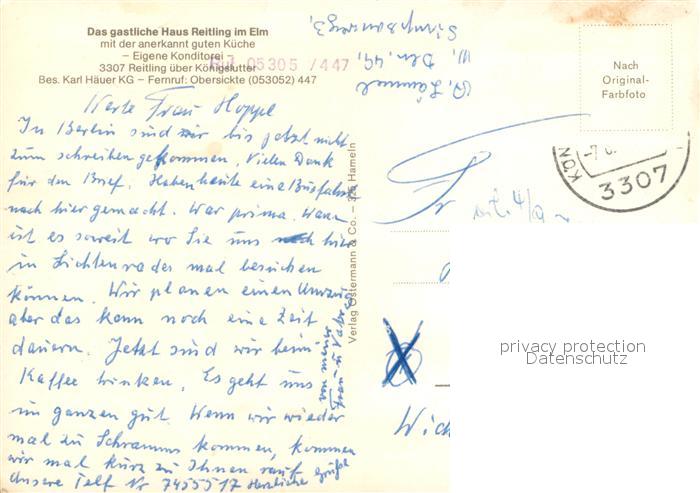 Das gastliche Haus Reitling im Elm
mit der anerkannt guten Küche
– Eigene Konditorei –
3307 Reitling über Königslutter
Bes. Karl Häuer KG – Fernruf: Obersickte (053052) 447
05305 /447
Werte Frau Hoppe
In Berlin sind wir bis jetzt nicht
zum schreiben gekommen. Vielen Dank
für den Brief. Haben heute eine Busfahrt
nach hier gemacht. War prima. Wann
ist es soweit wo Sie uns hier
in Lichtenrade mal besuchen
können. Wir planen einen Umzug
aber das kann noch eine Zeit
dauern. Jetzt sind wir beim
Kaffee trinken. Es geht uns
im ganzen gut. Wenn wir wieder
mal zu Schramms kommen, kommen
wir mal kurz zu Ihnen rauf
Unsere Telf Nr 7455517 Herzliche Grüße
von meiner
Frau u.
Verlag Ostermann & Co. – 325 Hameln
Nach
Original-
Farbfoto
3307
Fr
privacy protection
Datenschutz